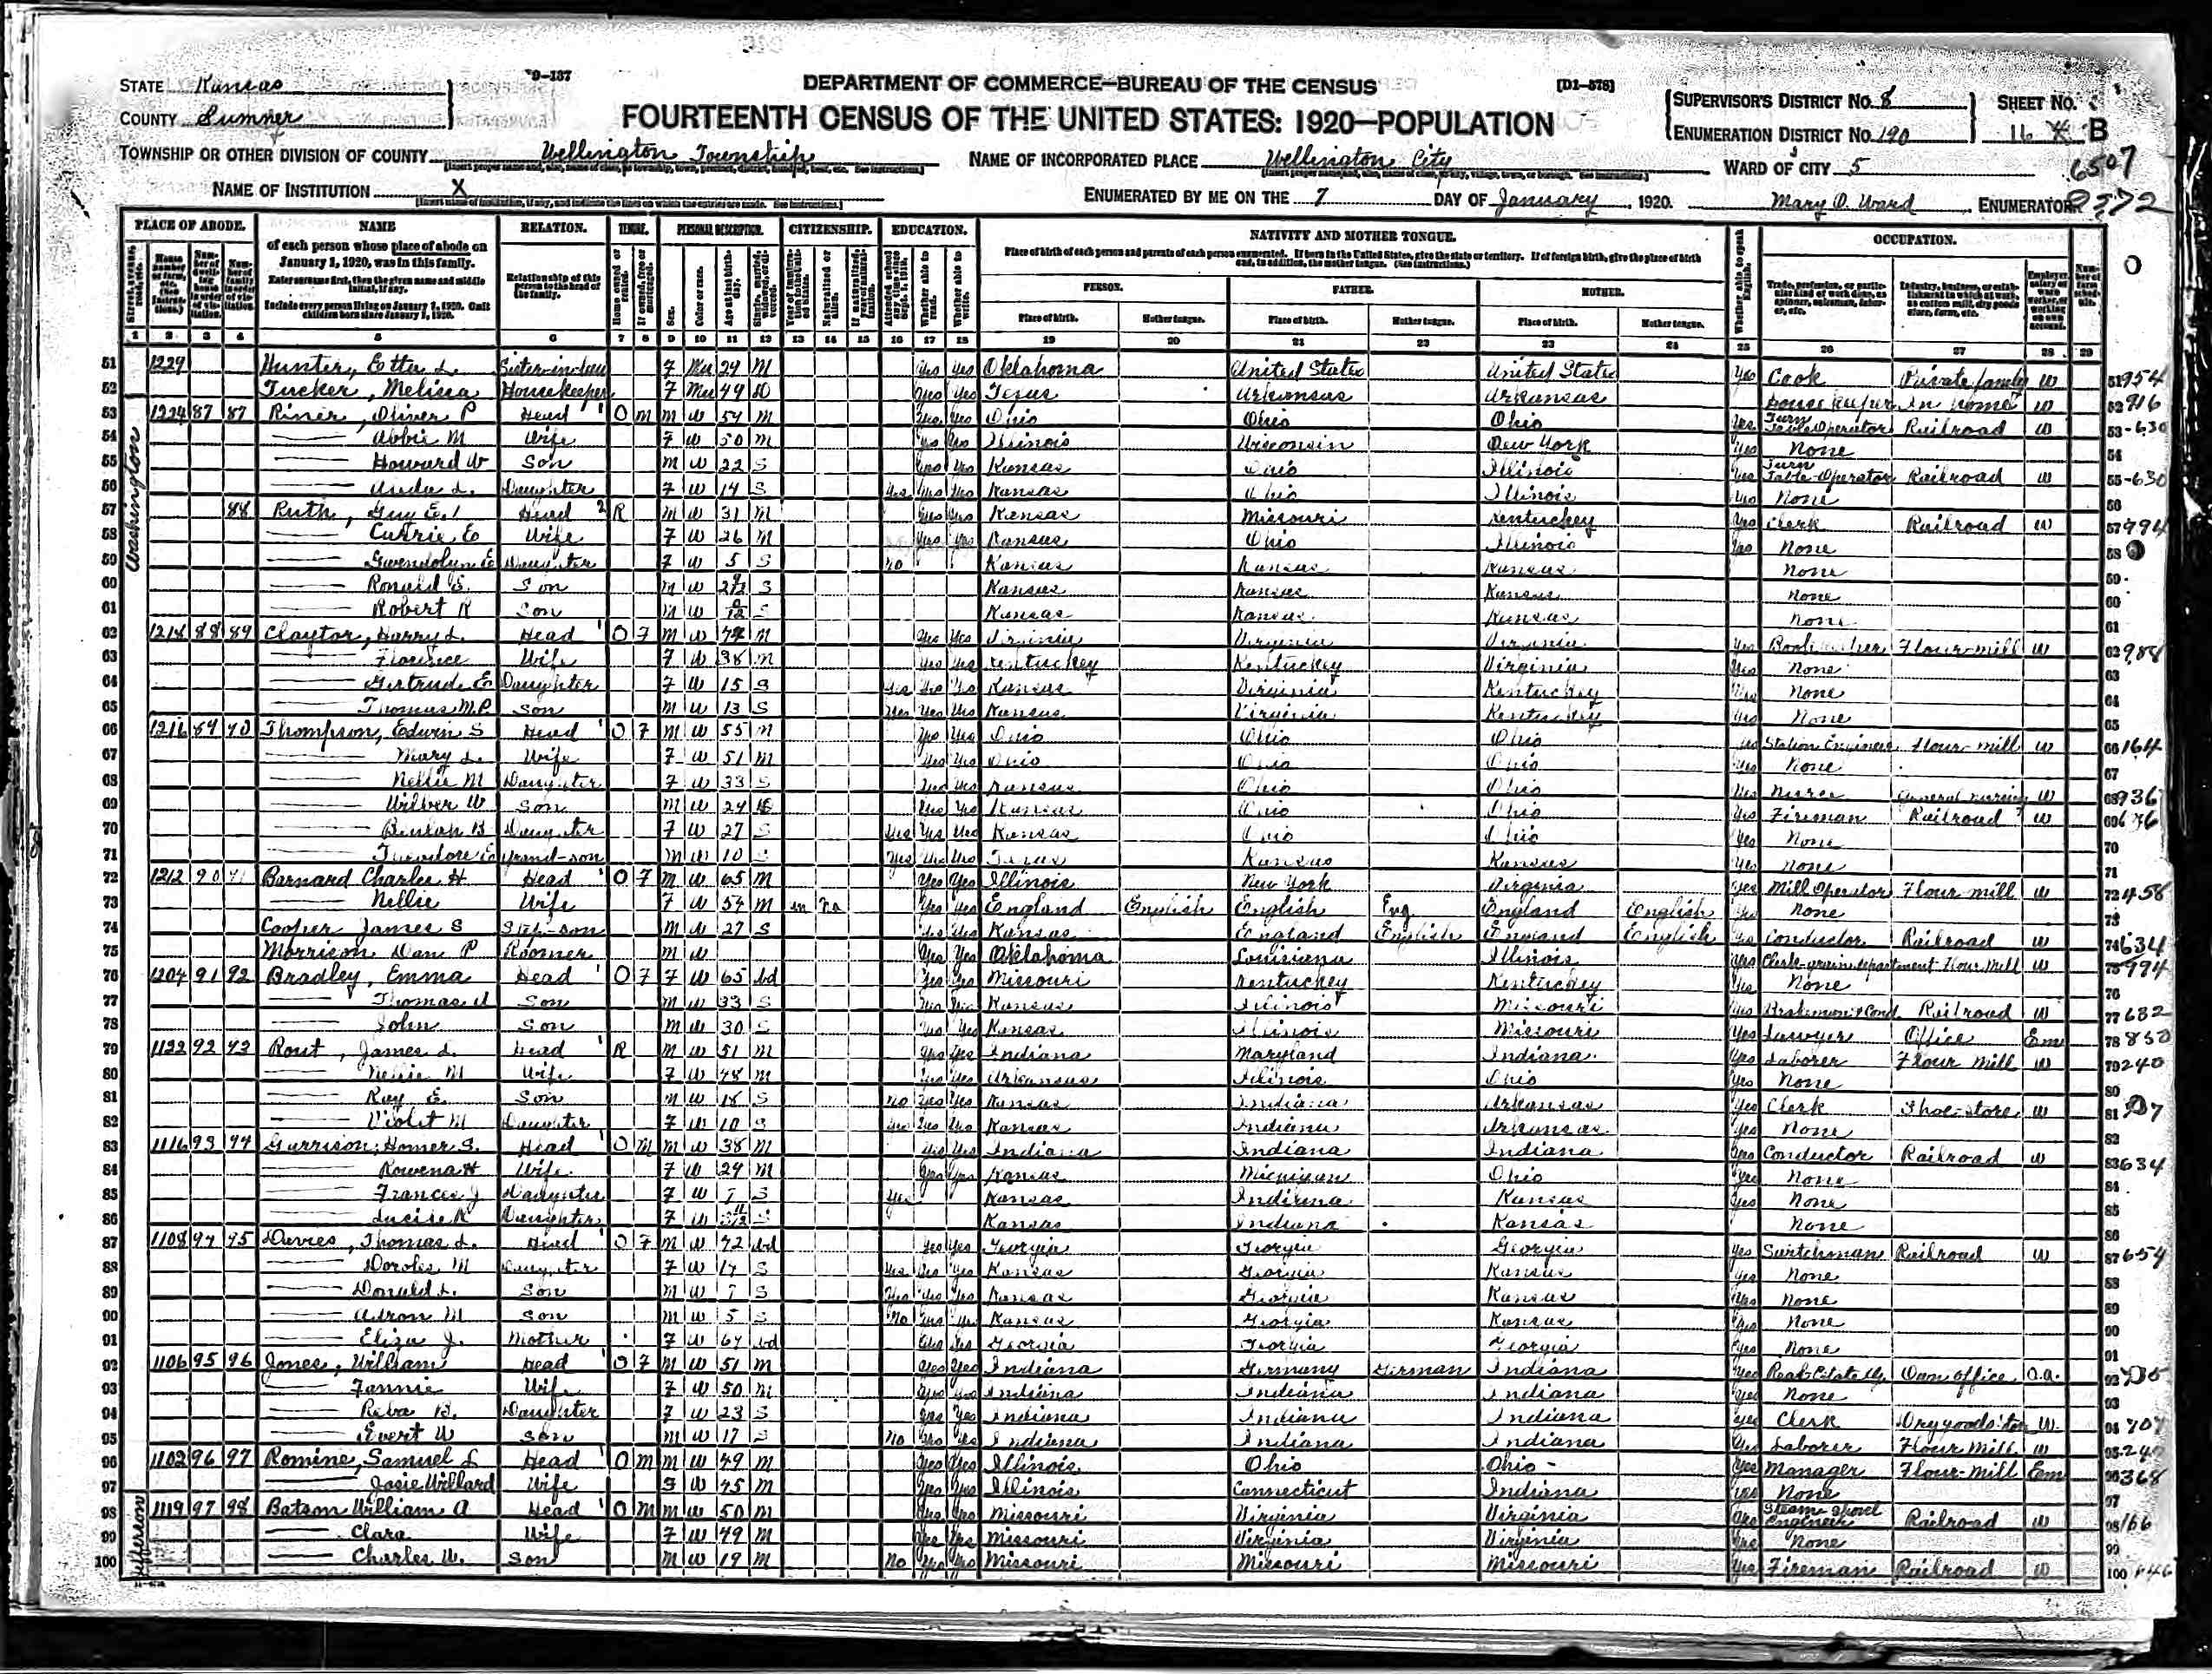 9-137
STATE Kansas
COUNTY Sumner
DEPARTMENT OF COMMERCE—BUREAU OF THE CENSUS
[D1-578]
FOURTEENTH CENSUS OF THE UNITED STATES: 1920—POPULATION
SUPERVISOR'S DISTRICT No. 8
ENUMERATION DISTRICT No. 190
SHEET No.
16 B
6507
TOWNSHIP OR OTHER DIVISION OF COUNTY Wellington Township
NAME OF INCORPORATED PLACE Wellington City
WARD OF CITY 5
NAME OF INSTITUTION X
ENUMERATED BY ME ON THE 7 DAY OF January, 1920. Mary O. Ward, ENUMERATOR.
PLACE OF ABODE. NAME RELATION. TENURE. PERSONAL DESCRIPTION. CITIZENSHIP. EDUCATION. NATIVITY AND MOTHER TONGUE. OCCUPATION.
of each person whose place of abode on January 1, 1920, was in this family.
Enter surname first, then the given name and middle initial, if any.
Include every person living on January 1, 1920. Omit children born since January 1, 1920.
Relationship of this person to the head of the family.
Place of birth of each person and parents of each person enumerated. If born in the United States, give the state or territory. If of foreign birth, give the place of birth and, in addition, the mother tongue. (See instructions.)
PERSON. FATHER. MOTHER.
Place of birth. Mother tongue. Place of birth. Mother tongue. Place of birth. Mother tongue.
1 2 3 4 5 6 7 8 9 10 11 12 13 14 15 16 17 18 19 20 21 22 23 24 25 26 27 28 29
Washington
51 1229 Hunter, Etta L Sister-in-law F Mu 29 M Yes Yes Oklahoma United States United States Yes Cook Private family W 954
52 Tucker, Melissa Housekeeper F Mu 49 D Yes Yes Texas Arkansas Arkansas Housekeeper In home W 916
53 1224 87 87 Riner, Oliver P Head O M M W 54 M Yes Yes Ohio Ohio Ohio Yes Turn Table Operator Railroad W 630
54 Abbie M Wife F W 50 M Yes Yes Illinois Wisconsin New York Yes None
55 Howard W Son M W 22 S Yes Yes Kansas Ohio Illinois Yes Turn Table Operator Railroad W 630
56 L. Daughter F W 14 S Yes Yes Yes Kansas Ohio Illinois Yes None
57 88 Ruth, Guy E. Head R M W 31 M Yes Yes Kansas Missouri Kentucky Yes Clerk Railroad W 994
58 Carrie E Wife F W 26 M Yes Yes Kansas Ohio Illinois Yes None
59 Gwendolyn E Daughter F W 5 S no Kansas Kansas Kansas None
60 Ronald E. Son M W S Kansas Kansas Kansas None
61 Robert R Son M W S Kansas Kansas Kansas None
62 1218 88 89 Claytor, Harry L. Head O F M W M Yes Yes Virginia Virginia Virginia Yes Bookkeeper Flour mill W 988
63 Florence Wife F W 38 M Yes Yes Kentucky Kentucky Virginia Yes None
64 Gertrude E Daughter F W 15 S Yes Yes Yes Kansas Virginia Kentucky Yes None
65 Thomas M.P. Son M W 13 S Yes Yes Yes Kansas Virginia Kentucky Yes None
66 1216 89 90 Thompson, Edwin S Head O F M W 55 M Yes Yes Ohio Ohio Ohio Yes Station Engineer Flour mill W 164
67 Mary L. Wife F W 51 M Yes Yes Ohio Ohio Ohio Yes None
68 Nellie M Daughter F W 33 S Yes Yes Kansas Ohio Ohio Yes Nurse General nursing W 936
69 Wilber W Son M W 24 Yes Yes Kansas Ohio Ohio Yes Fireman Railroad W
70 Beulah B Daughter F W 27 S Yes Yes Yes Kansas Ohio Ohio Yes None
71 Theodore E Grand-son M W 10 S Yes Yes Yes Texas Kansas Kansas Yes None
72 1212 90 91 Barnard Charles H Head O F M W 65 M Yes Yes Illinois New York Virginia Yes Mill Operator Flour mill W 458
73 Nellie Wife F W 54 M un na Yes Yes England English English Eng England English Yes None
74 Cooper James S Step-son M W 27 S Yes Yes Kansas England English England English Yes Conductor Railroad W 634
75 Morrison Dan P Roomer M W Yes Yes Oklahoma Louisiana Illinois Yes Clerk-grain department Flour Mill W 994
76 1204 91 92 Bradley, Emma Head O F F W 65 Wd Yes Yes Missouri Kentucky Kentucky Yes None
77 Thomas Son M W 33 S Yes Yes Kansas Illinois Missouri Yes Brakeman & Cond Railroad W 632
78 John Son M W 30 S Yes Yes Kansas Illinois Missouri Yes Lawyer Office Em
79 1122 92 93 Rout, James L. Head R M W 51 M Yes Yes Indiana Maryland Indiana Yes Laborer Flour Mill W 240
80 Nellie M Wife F W 48 M Yes Yes Arkansas Illinois Ohio Yes None
81 Ray E. Son M W 18 S no Yes Yes Kansas Indiana Arkansas Yes Clerk Shoe-store W
82 Violet M Daughter F W 10 S Yes Yes Yes Kansas Indiana Arkansas Yes None
83 1116 93 94 Garrison, Homer S. Head O M M W 38 M Yes Yes Indiana Indiana Indiana Yes Conductor Railroad W 634
84 Rowena H Wife F W 29 M Yes Yes Kansas Michigan Ohio Yes None
85 Frances J Daughter F W 7 S Yes Kansas Indiana Kansas Yes None
86 Lucile R Daughter F W S Kansas Indiana Kansas None
87 1108 94 95 Davies, Thomas L. Head O F M W 42 Wd Yes Yes Georgia Georgia Georgia Yes Switchman Railroad W 654
88 M Daughter F W 14 S Yes Yes Yes Kansas Georgia Kansas Yes None
89 Donald L. Son M W 7 S Yes Yes Yes Kansas Georgia Kansas Yes None
90 M Son M W 5 S No Kansas Georgia Kansas Yes None
91 Eliza J. Mother F W 67 Wd Yes Yes Georgia Georgia Georgia Yes None
92 1106 95 96 Jones, William Head O F M W 51 M Yes Yes Indiana Germany German Indiana Yes Real Estate Own office O.a.
93 Fannie Wife F W 50 M Yes Yes Indiana Indiana Indiana Yes None
94 Reba B. Daughter F W 23 S Yes Yes Indiana Indiana Indiana Yes Clerk Dry goods store W. 707
95 Evert W Son M W 17 S no Yes Yes Indiana Indiana Indiana Yes Laborer Flour Mill W 240
96 1102 96 97 Romine, Samuel L Head O M M W 49 M Yes Yes Illinois Ohio Ohio Yes Manager Flour-Mill Em 368
97 Josie Willard Wife F W 45 M Yes Yes Illinois Connecticut Indiana Yes None
Jefferson
98 1119 97 98 Batson William A Head O M M W 50 M Yes Yes Missouri Virginia Virginia Yes Steam Shovel Engineer Railroad W 166
99 Clara Wife F W 49 M Yes Yes Missouri Virginia Virginia Yes None
100 Charles W. Son M W 19 M No Yes Yes Missouri Missouri Missouri Yes Fireman Railroad W